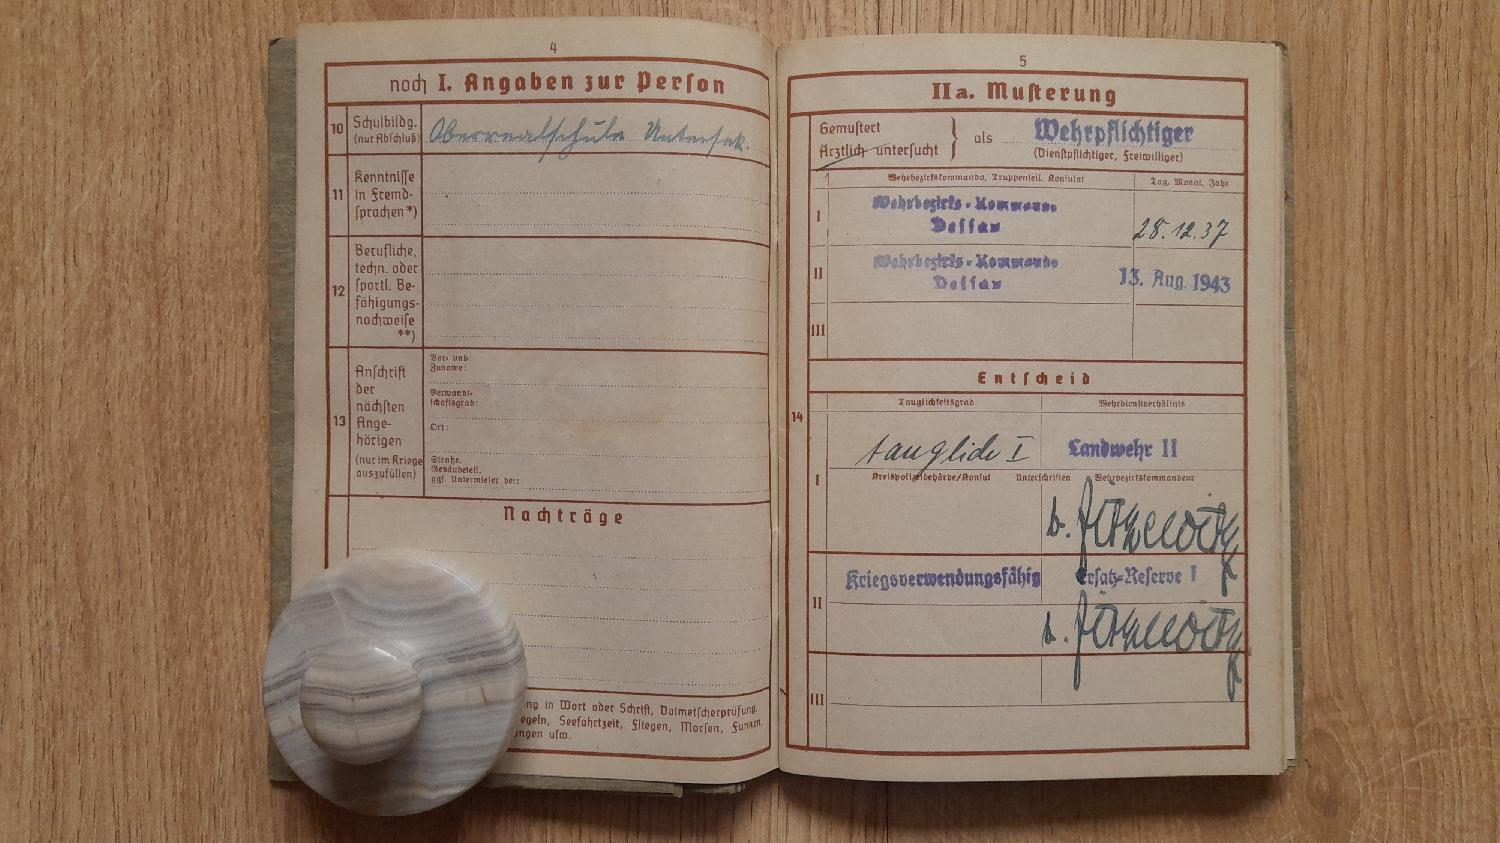 4
noch I. Angaben zur Person
10
Schulbildg.
(nur Abschluß)
Oberrealschule Untersek.
11
Kenntnisse
in Fremd-
sprachen *)
12
Berufliche,
techn. oder
sportl. Be-
fähigungs-
nachweise
**)
13
Anschrift
der
nächsten
Ange-
hörigen
(nur im Kriege
auszufüllen)
Vor- und
Zuname:
Verwandt-
schaftsgrad:
Ort:
Straße,
Gebäudeteil,
ggf. Untermieter bei:
Nachträge
ng in Wort oder Schrift, Dolmetscherprüfung.
egeln, Seefahrtzeit, Fliegen, Morsen, Funken,
ungen usw.
5
IIa. Musterung
Gemustert
Ärztlich untersucht
als
Wehrpflichtiger
(Dienstpflichtiger, Freiwilliger)
Wehrbezirkskommando, Truppenteil, Konsulat
Tag, Monat, Jahr
I
Wehrbezirks-Kommando
Dessau
28.12.37
II
Wehrbezirks-Kommando
Dessau
13. Aug. 1943
III
Entscheid
14
Tauglichkeitsgrad
Wehrdienstverhältnis
I
tauglich I
Landwehr II
Kreispolizeibehörde/Konsul
Unterschriften
Wehrbezirkskommandeur
II
Kriegsverwendungsfähig
Ersatz-Reserve I
III